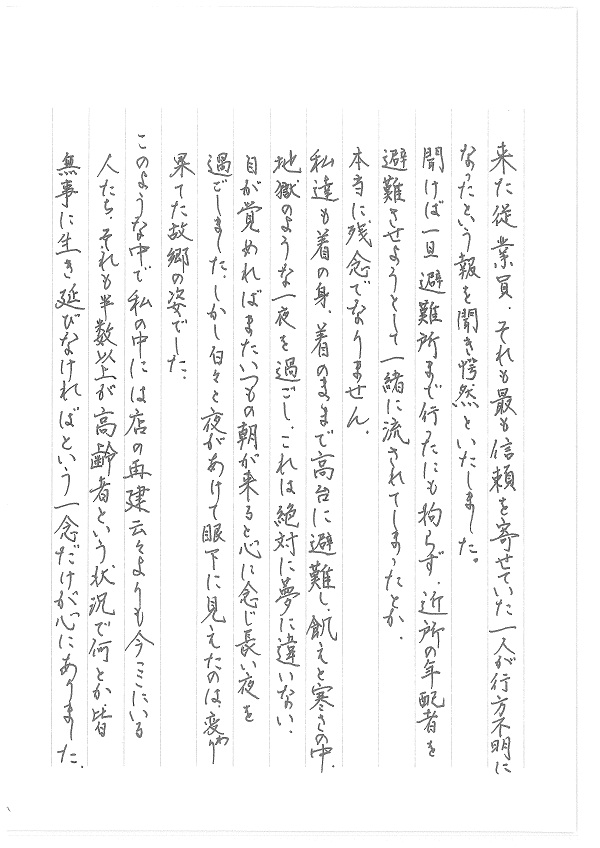 来た従業員、それも最も信頼を寄せていた一人が行方不明に
なったという報を聞き愕然といたしました。
聞けば一旦避難所まで行ったにも拘らず、近所の年配者を
避難させようとして一緒に流されてしまったとか、
本当に残念でなりません。
私達も着の身、着のままで高台に避難し、飢えと寒さの中、
地獄のような一夜を過ごし、これは絶対に夢に違いない、
目が覚めればまたいつもの朝が来ると心に念じ長い夜を
過ごしました、しかし白々と夜があけて眼下に見えたのは、変わり
果てた故郷の姿でした、
このような中で私の中には店の再建云々よりも今ここにいる
人たち、それも半数以上が高齢者という状況で何とか皆
無事に生き延びなければという一念だけが心にありました、